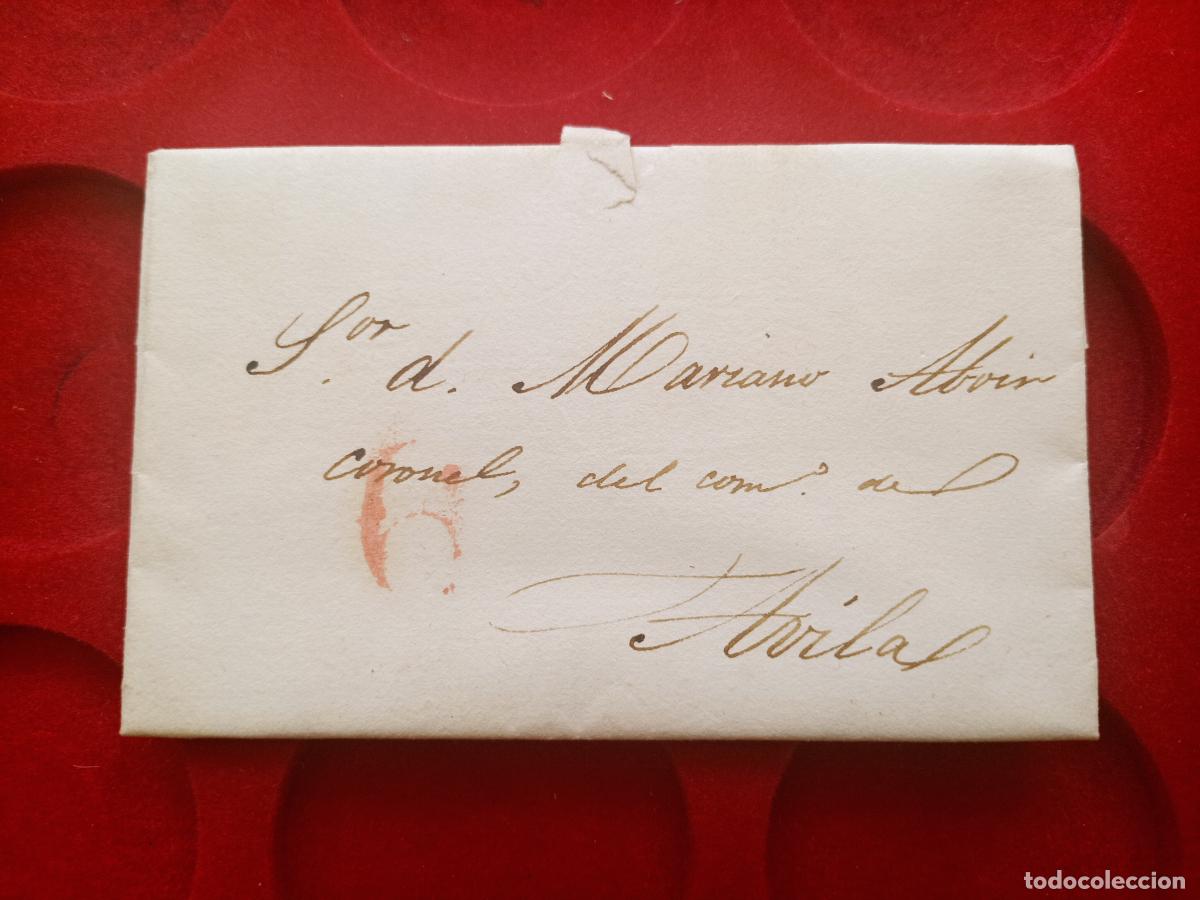 Sor. d. Mariano Aboin
coronel, del com.o de
6
Avila
todocoleccion